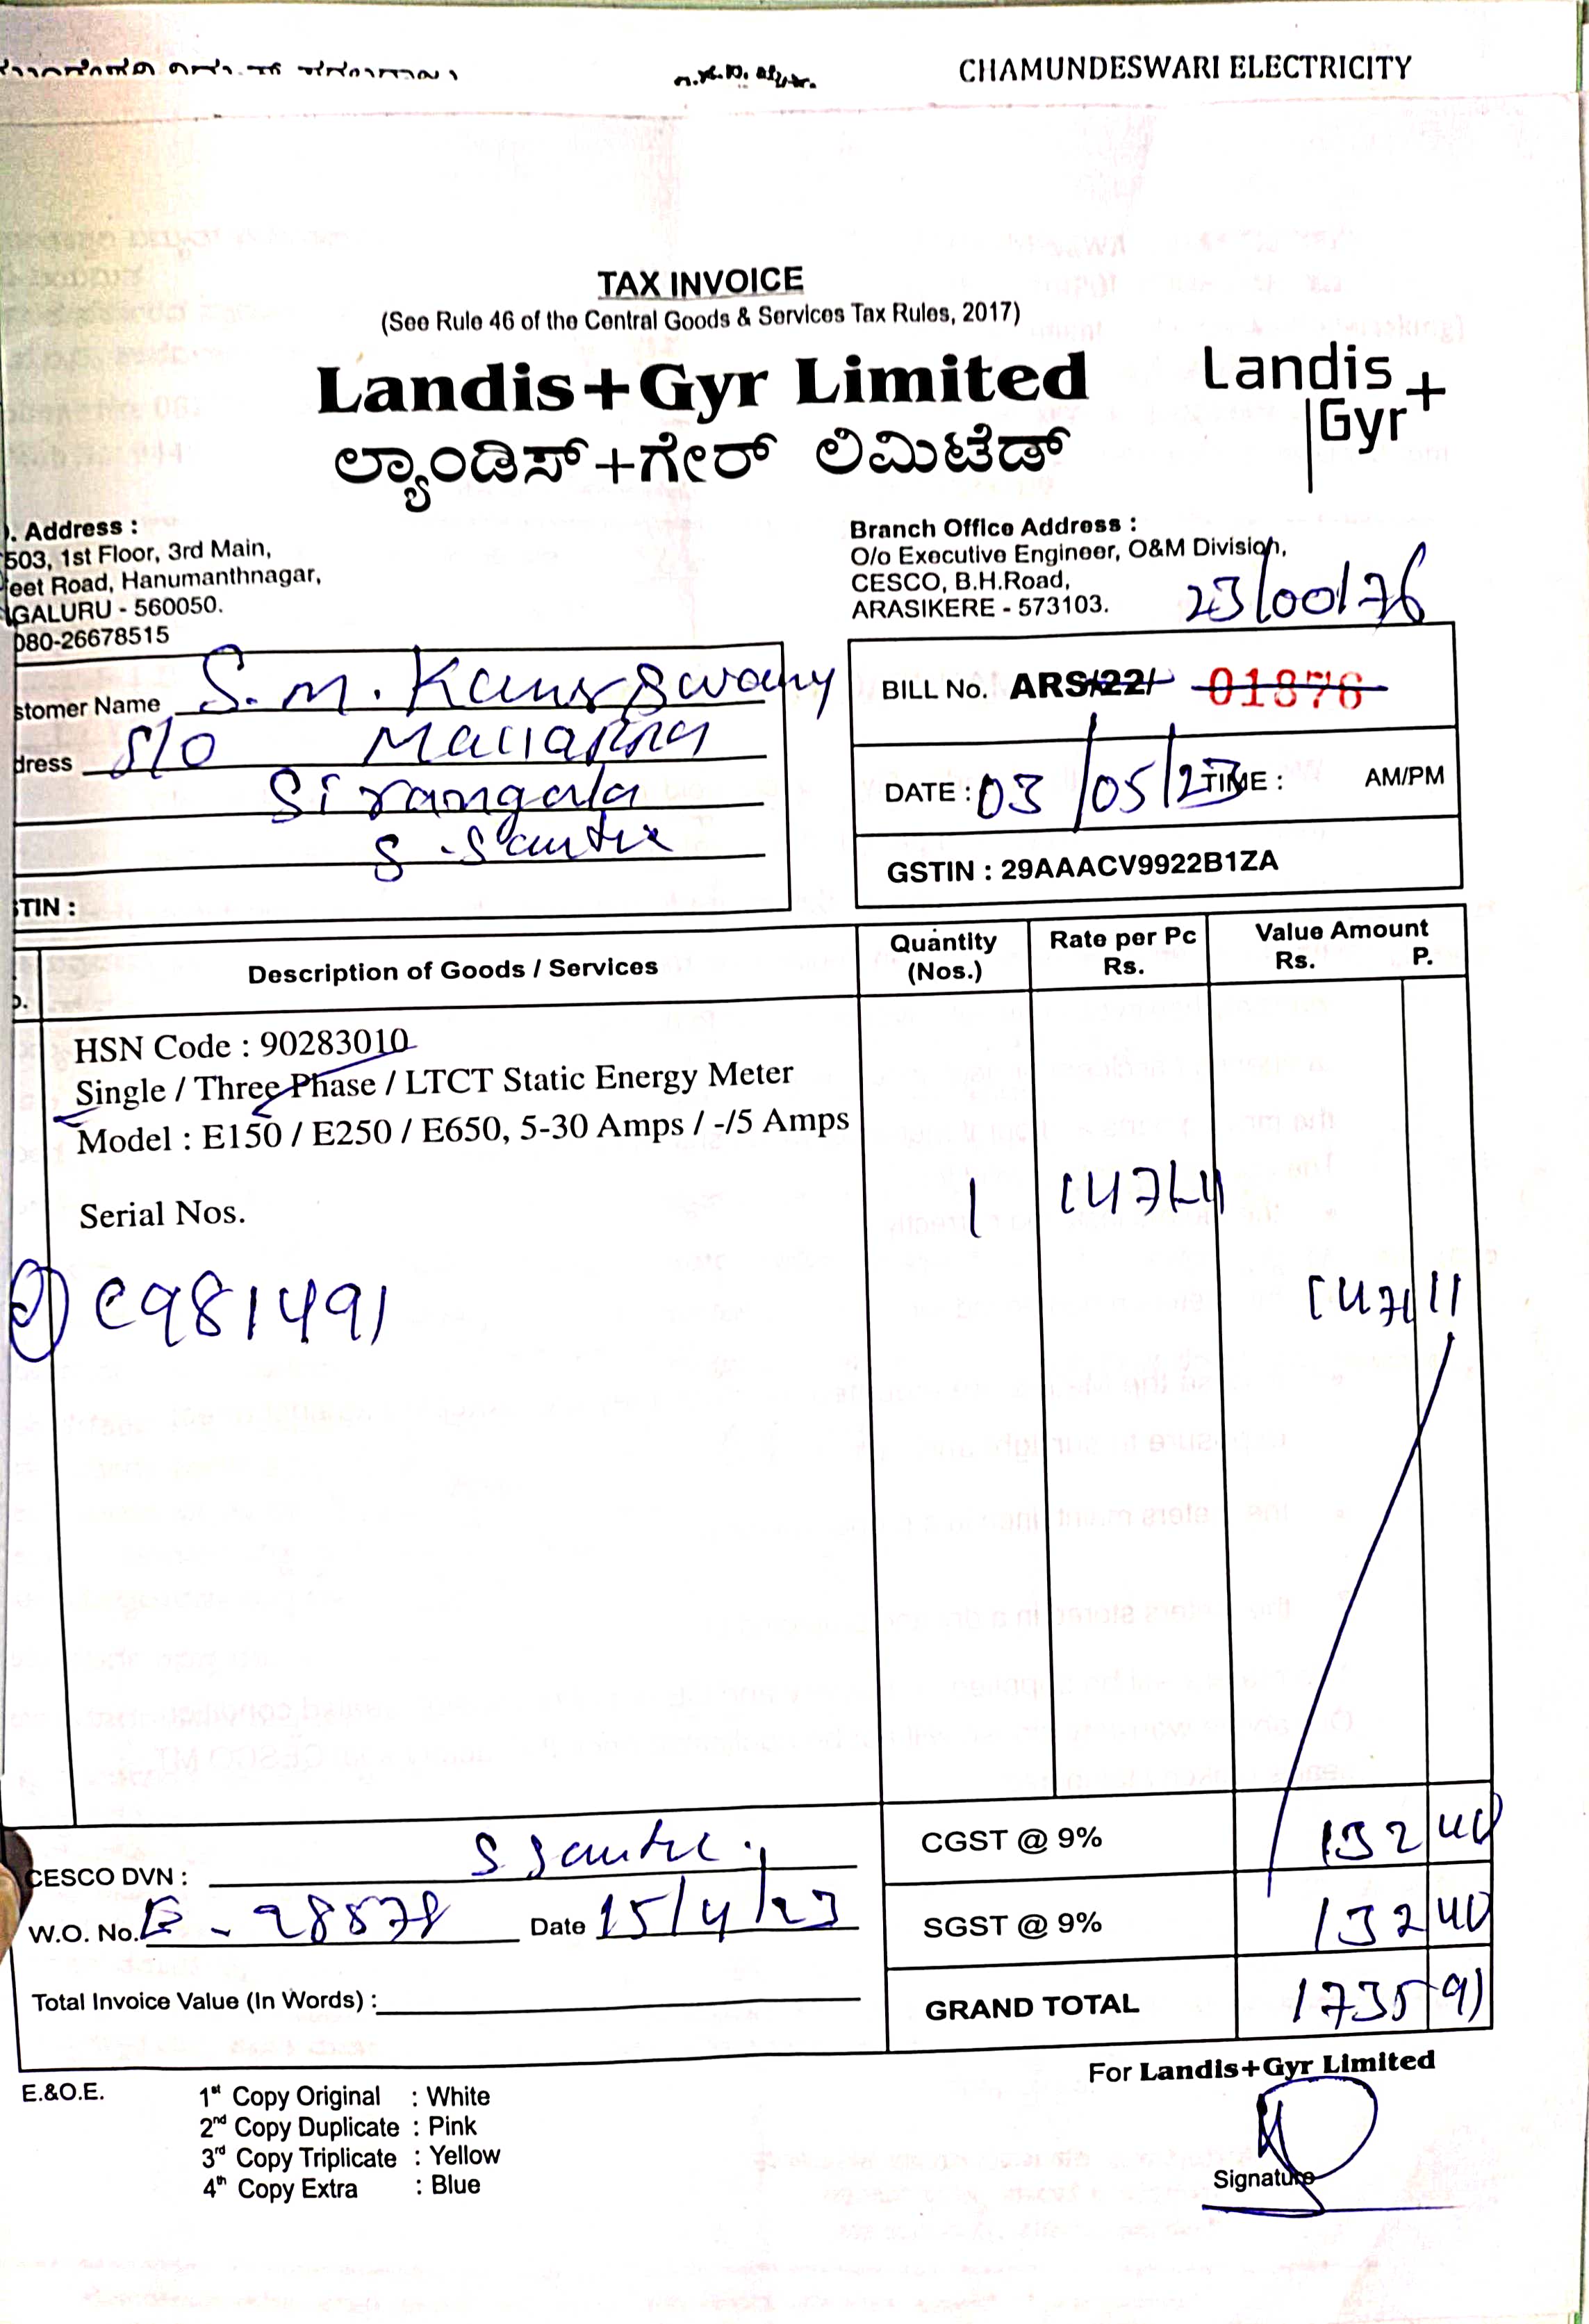 CHAMUNDESWARI ELECTRICITY
TAX INVOICE
(See Rule 46 of the Central Goods & Services Tax Rules, 2017)
Landis+Gyr Limited
ಲ್ಯಾಂಡಿಸ್+ಗೇರ್ ಲಿಮಿಟೆಡ್
Landis
Gyr+
. Address :
503, 1st Floor, 3rd Main,
eet Road, Hanumanthnagar,
GALURU - 560050.
080-26678515
Branch Office Address :
O/o Executive Engineer, O&M Division,
CESCO, B.H.Road,
ARASIKERE - 573103.
23/00176
stomer Name S.M.
dress S/O
Sirangala
S.Santhe
TIN :
BILL No. ARS/22/- 01876
DATE : 03/05/23 TIME : AM/PM
GSTIN : 29AAACV9922B1ZA
Description of Goods / Services
Quantity (Nos.)
Rate per Pc Rs.
Value Amount Rs. P.
HSN Code : 90283010
Single / Three Phase / LTCT Static Energy Meter
Model : E150 / E250 / E650, 5-30 Amps / -/5 Amps
Serial Nos.
1
1471-11
1471 11
C981491
CESCO DVN : S Santhe.
W.O. No. - 28878 Date 15/4/23
Total Invoice Value (In Words) :
CGST @ 9% 132 40
SGST @ 9% 132 40
GRAND TOTAL 1735 91
E.&O.E.
1st Copy Original : White
2nd Copy Duplicate : Pink
3rd Copy Triplicate : Yellow
4th Copy Extra : Blue
For Landis+Gyr Limited
Signature